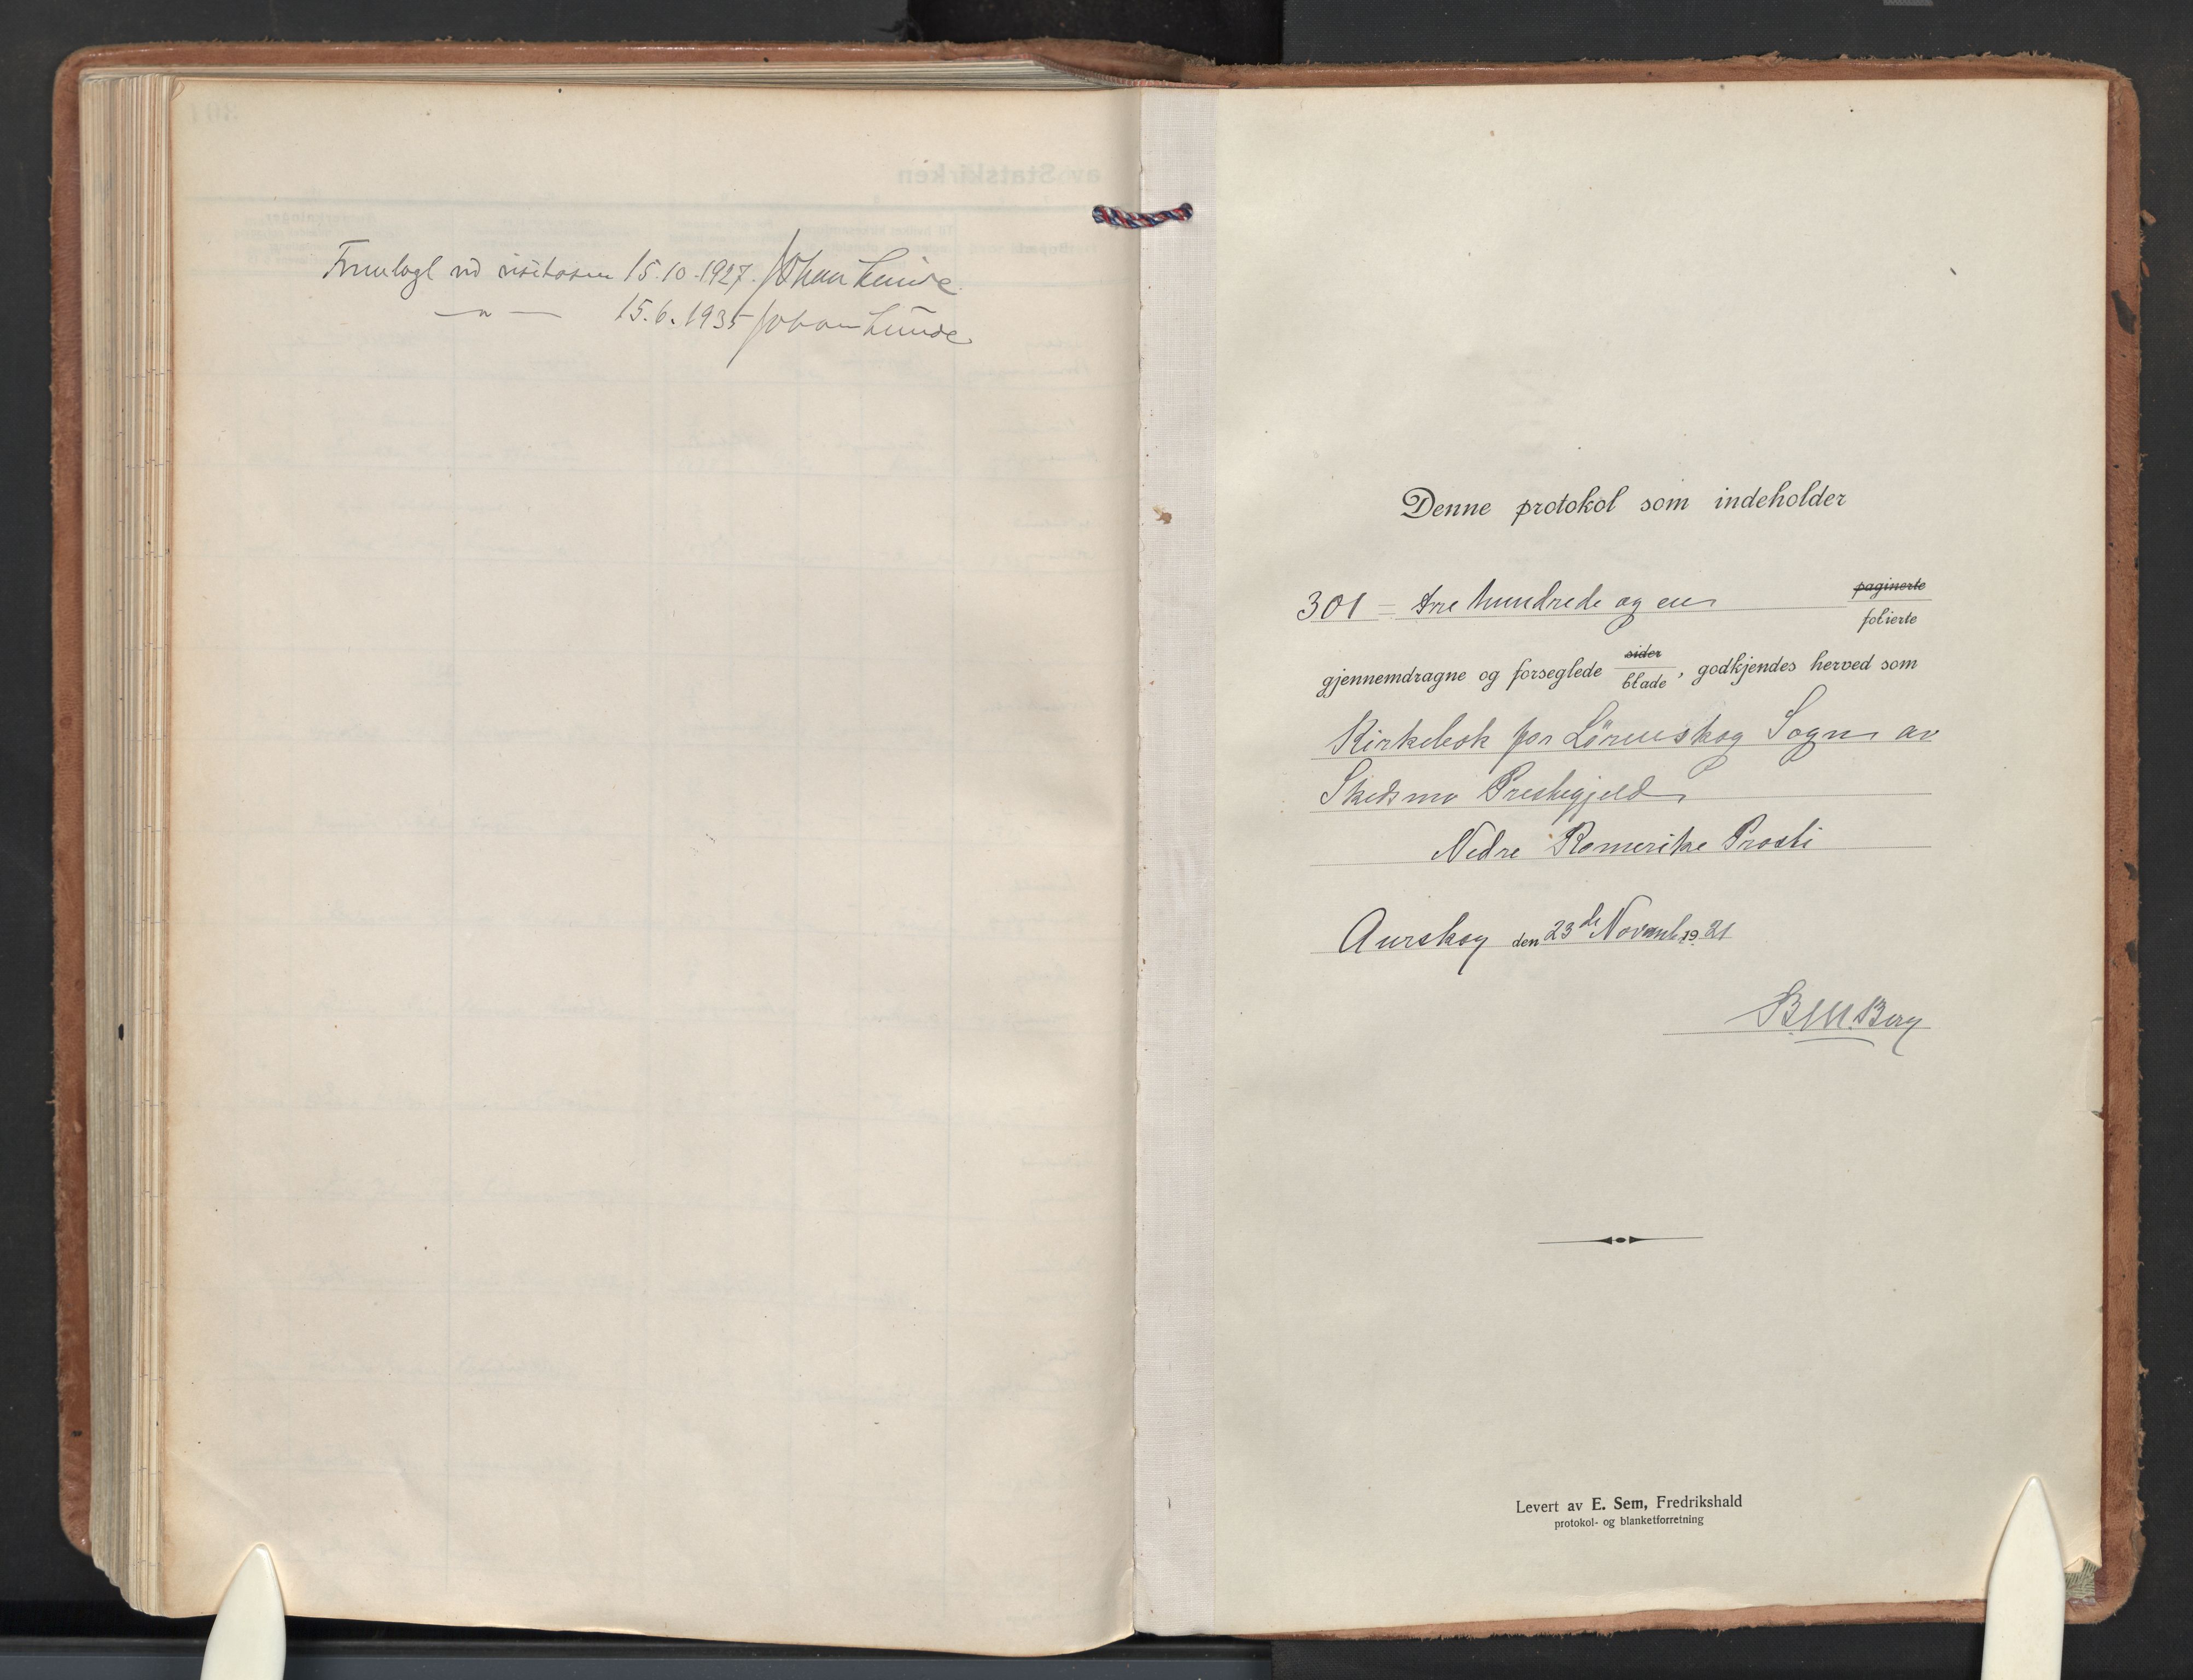 Fremlagt ved visitasen 15.10.1927. Johan Lunde
— " — 15.6.1935 Johan Lunde
Denne protokol som indeholder
301 = tre hundrede og en paginerte
folierte
gjennemdragne og forseglede sider blade, godkjendes herved som
Kirkebok for Lörenskog Sogn av
Skedsmo Prestegjeld
Nedre Romerike Prosti
Aurskog den 23de Novemb. 1921
B.M.Berg
Levert av E. Sem, Fredrikshald
protokol- og blanketforretning